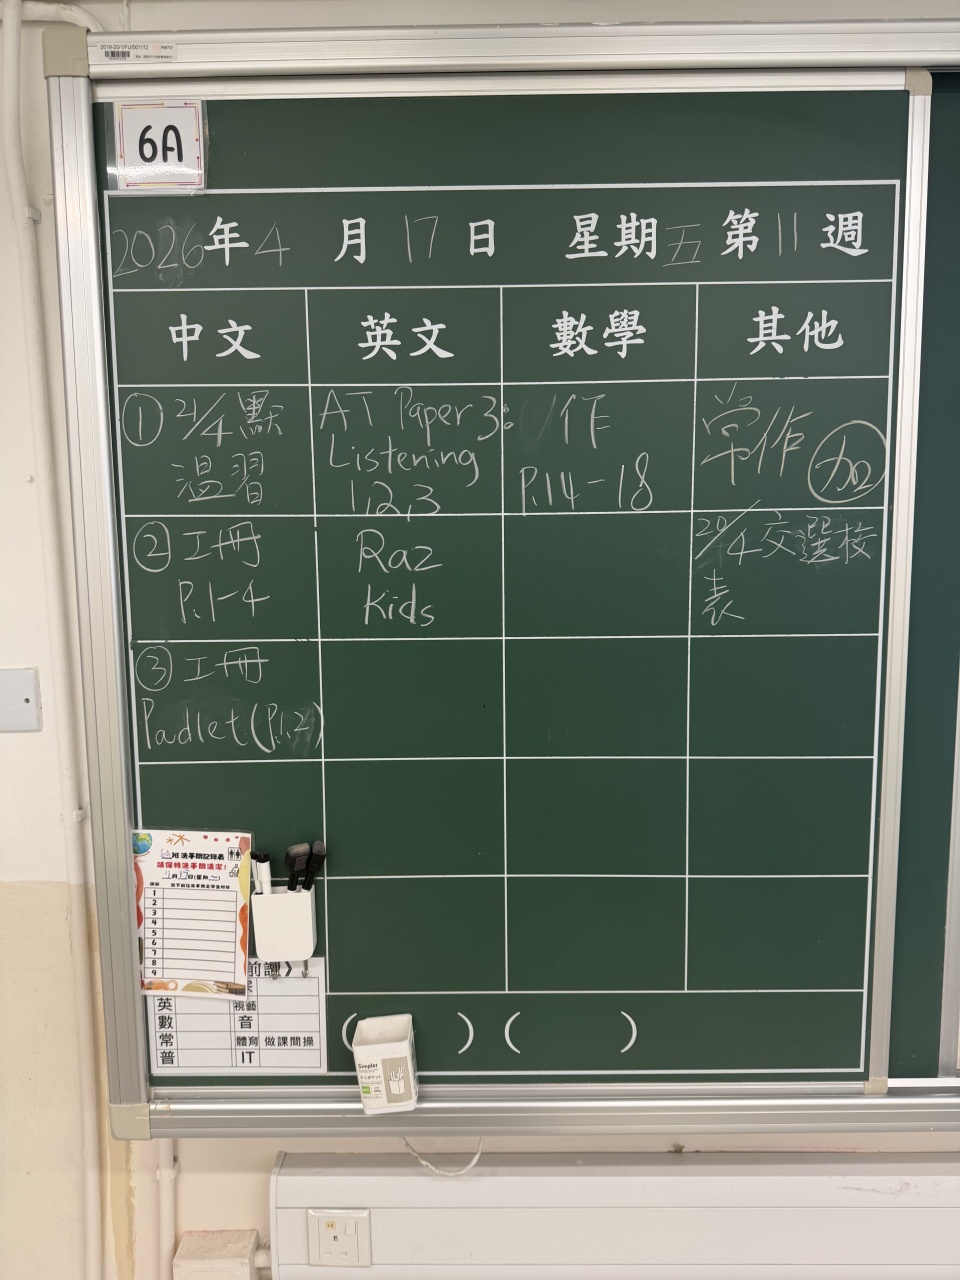 2019-20/1/FU/001112
6A
2026年4月17日 星期五 第11週
中文 英文 數學 其他
① 21/4默
溫習
AT Paper 3:
Listening
1,2,3
作
P.14-18
常作 加
② 工冊
P.1-4
Raz
Kids
20/4交選校
表
③ 工冊
Padlet(P.1,2)
班洗手間記錄表
請保持洗手間清潔!
1
2
3
4
5
6
7
8
9
英 視藝
數 音
常 體育 做課間操
普 IT
( ) ( )
Simpler